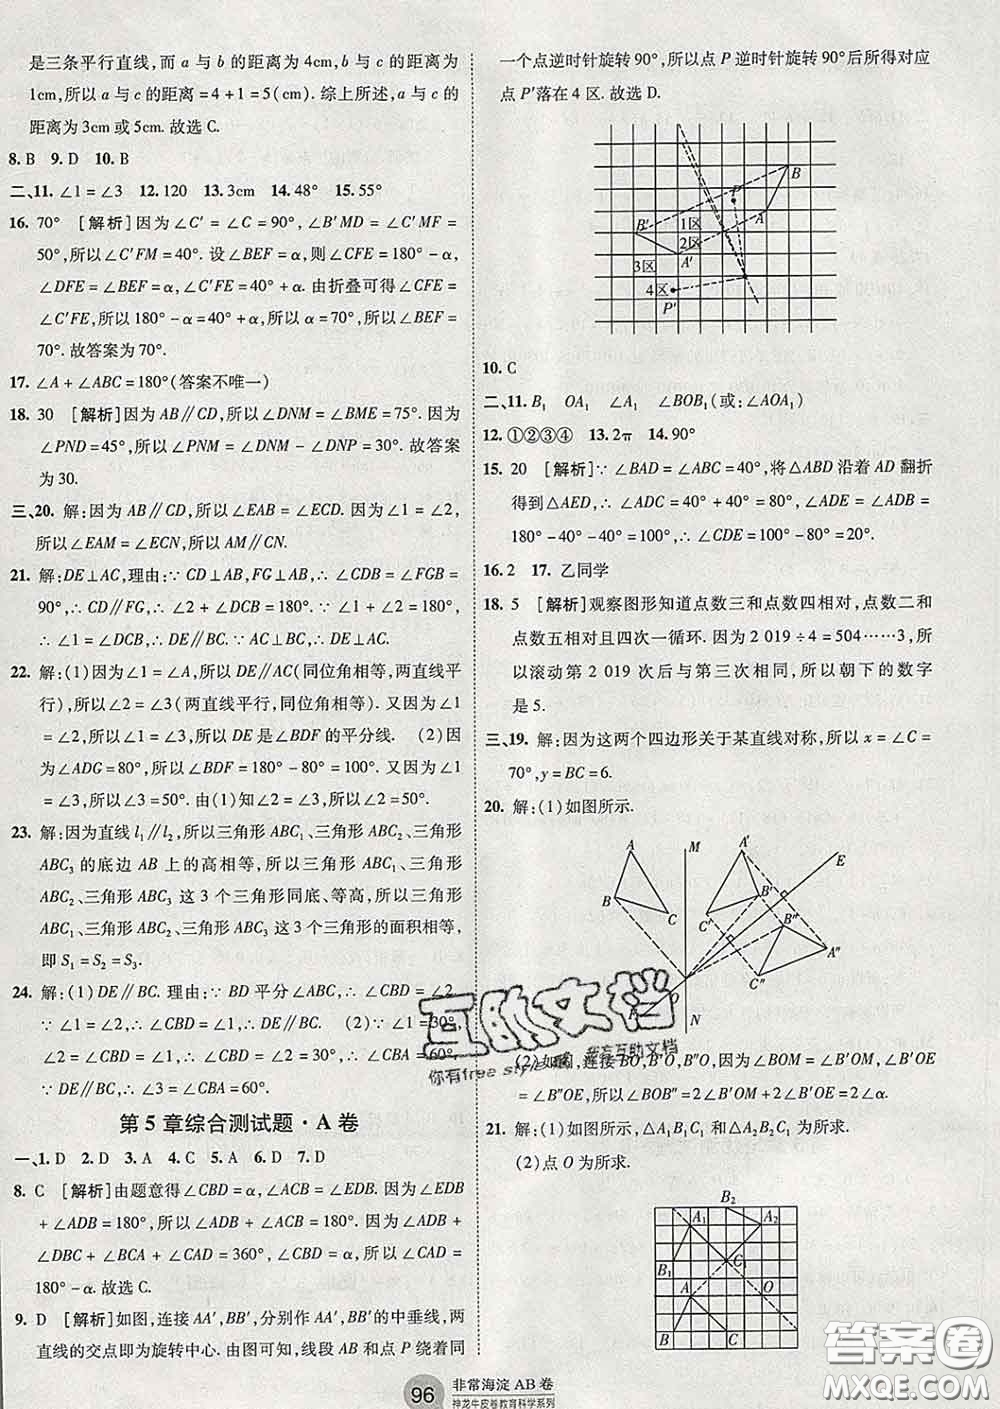 是三条平行直线,而 a 与 b 的距离为 4cm,b 与 c 的距离为
1cm,所以 a 与 c 的距离=4+1=5(cm). 综上所述,a 与 c 的
距离为 3cm 或 5cm. 故选 C.
8. B 9. D 10. B
二、11. ∠1=∠3 12. 120 13. 3cm 14. 48° 15. 55°
16. 70° [解析]因为∠C′=∠C=90°,∠B′MD=∠C′MF=
50°,所以∠C′FM=40°. 设∠BEF=α,则∠CFE=180°-α,
∠DFE=∠BEF=α,∠C′FE=40°+α. 由折叠可得∠CFE=
∠C′FE,所以 180°-α=40°+α,所以 α=70°,所以∠BEF=
70°. 故答案为 70°.
17. ∠A+∠ABC=180°(答案不唯一)
18. 30 [解析]因为 AB∥CD,所以∠DNM=∠BME=75°. 因为
∠PND=45°,所以∠PNM=∠DNM-∠DNP=30°. 故答案
为 30.
三、20. 解:因为 AB∥CD,所以∠EAB=∠ECD. 因为∠1=∠2,
所以∠EAM=∠ECN,所以 AM∥CN.
21. 解:DE⊥AC,理由:∵CD⊥AB,FG⊥AB,∴∠CDB=∠FGB=
90°,∴CD∥FG,∴∠2=∠DCB,∵∠1=∠2,
∴∠1=∠DCB,∴DE∥BC. ∵BC⊥AC,∴DE⊥AC.
22. 解:(1)因为∠1=∠A,所以 DE∥AC(同位角相等,两直线平
行),所以∠2=∠3(两直线平行,同位角相等). 又因为
∠1=∠2,所以∠1=∠3,所以 DE 是∠BDF 的平分线. (2)因
为∠ADG=80°,所以∠BDF=180°-80°=100°. 因为∠1=
∠3,所以∠3=50°. 由(1)知∠2=∠3,所以∠2=50°.
23. 解:因为直线 l₁∥l₂,所以三角形 ABC₁、三角形 ABC₂、三角形
ABC₃ 的底边 AB 上的高相等,所以三角形 ABC₁、三角形
ABC₂、三角形 ABC₃ 这 3 个三角形同底、等高,所以三角形
ABC₁、三角形 ABC₂、三角形 ABC₃ 这 3 个三角形的面积相等,
即 S₁=S₂=S₃.
24. 解:(1)DE∥BC. 理由:∵BD 平分∠ABC,∴∠CBD=∠2.
∵∠1=∠2,∴∠CBD=∠1,∴DE∥BC. (2)∵∠1=30°,
∠2=∠CBD=∠1,∴∠2=∠CBD=30°,∴∠CBA=60°.
∵DE∥BC,∴∠3=∠CBA=60°.
第 5 章综合测试题·A 卷
一、1. D 2. D 3. A 4. C 5. A 6. D 7. D
8. C [解析]由题意得∠CBD=α,∠ACB=∠EDB. 因为∠EDB
+∠ADB=180°,所以∠ADB+∠ACB=180°. 因为∠ADB+
∠DBC+∠BCA+∠CAD=360°,∠CBD=α,所以∠CAD=
180°-α. 故选 C.
9. D [解析]如图,连接 AA′,BB′,分别作 AA′,BB′的中垂线,两
直线的交点即为旋转中心. 由图可知,线段 AB 和点 P 绕着同
一个点逆时针旋转 90°,所以点 P 逆时针旋转 90°后所得对应
点 P′落在 4 区. 故选 D.
B
P
B′ 1区 A
2区
3区 A′
4区
P′
10. C
二、11. B₁ OA₁ ∠A₁ ∠BOB₁(或:∠AOA₁)
12. ①②③④ 13. 2π 14. 90°
15. 20 [解析]∵∠BAD=∠ABC=40°,将△ABD 沿着 AD 翻折
得到△AED,∴∠ADC=40°+40°=80°,∠ADE=∠ADB=
180°-40°-40°=100°,∴∠CDE=100°-80°=20°.
16. 2 17. 乙同学
18. 5 [解析]观察图形知道点数三和点数四相对,点数二和
点数五相对且四次一循环. 因为 2 019÷4=504……3,所
以滚动第 2 019 次后与第三次相同,所以朝下的数字
是 5.
三、19. 解:因为这两个四边形关于某直线对称,所以 x=∠C=
70°,y=BC=6.
20. 解:(1)如图所示.
A M A′ E
B B′ B″
C C′ A″
C″
O
F N
(2)如图,连接 BO,B′O,B″O,因为∠BOM=∠B′OM,∠B′OE
=∠B″OE,所以∠BOB″=2∠B′OM+2∠B′OE=2∠α.
21. 解:(1)如图所示,△A₁B₁C₁ 和△A₂B₂C₂ 为所求.
(2)点 O 为所求.
B₂
A₁ A₂
B₁ C₁
A O
B C
互助文档
你有free style嘛,我有互助文档
96 非常海淀 AB 卷
神龙牛皮卷教育科学系列
答案圈
MXQE.COM